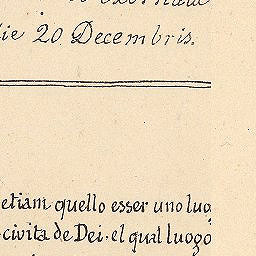 die 20 Decembris.
etiam quello esser uno luo
civita de Dei. el qual luogo